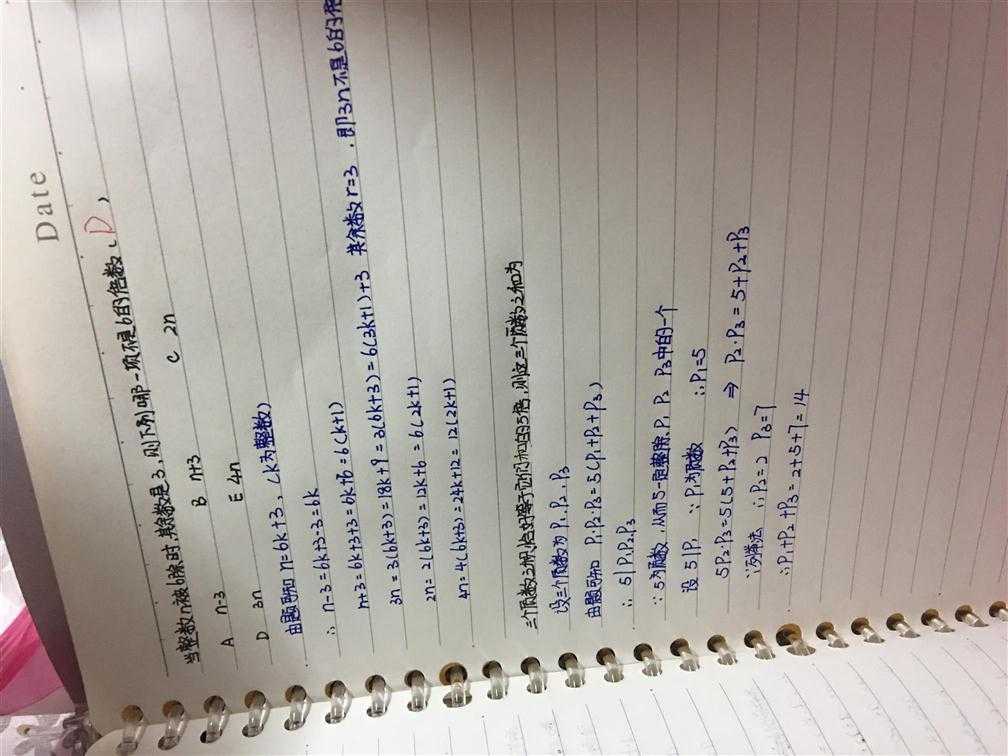 Date
当整数n被6除时,其余数是3,则下列哪一项不是6的倍数(D)
A n-3 B n+3 C 2n
D 3n E 4n
由题可知 n=6k+3,(k为整数)
∴ n-3=6k+3-3=6k
n+3=6k+3+3=6k+6=6(k+1)
3n=3(6k+3)=18k+9=3(6k+3)=6(3k+1)+3 其余数r=3 .即3n不是6的
2n=2(6k+3)=12k+6=6(2k+1)
4n=4(6k+3)=24k+12=12(2k+1)
三个质数之积恰好等于它们和的5倍,则这三个质数之和为
设三个质数为 P₁ P₂ P₃
由题可知 P₁·P₂·P₃=5(P₁+P₂+P₃)
∴ 5|P₁P₂P₃
∵5为质数,从而5一定整除 P₁ P₂ P₃中的一个
设 5|P₁ ∵P₁为质数 ∴P₁=5
5P₂P₃=5(5+P₂+P₃) ⇒ P₂·P₃=5+P₂+P₃
∵列举法 ∴P₂=2 P₃=7
∴P₁+P₂+P₃=2+5+7=14